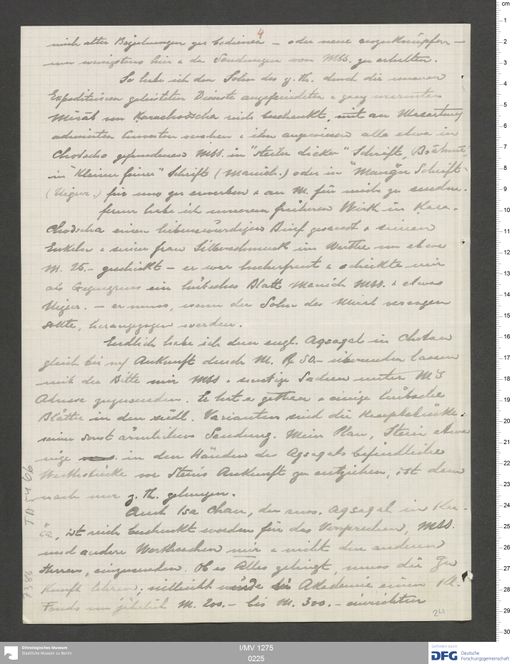 4
mich alter Beziehungen zu bedienen – oder neue anzuknüpfen –
um wenigstens hin & da Sendungen von MSS. zu erhalten.
So habe ich den Sohn des z. Th. durch die unseren
Expeditionen geleisteten Dienste
Miráb von Karachodscha reich beschenkt, mit an
machen & ihn angewiesen alle etwa in
Chotscho gefundenen MSS. in "starker dicker" Schrift,
in "kleiner feiner" Schrift (Manich.) oder in
(Uigur.) für uns zu erwerben & an M. für mich zu senden.
Ferner habe ich unserem früheren Wirt in Kara-
Chodscha einen liebenswürdigen Brief gesandt & seinen
Enkeln & seiner Frau Silberschmuck im Werthe von etwa
M. 25.- geschickt – er war hocherfreut & schickte mir
als Gegengruss ein hübsches Blatt Manich MSS. & etwas
Uigur. – er muss, wenn der Sohn des Miráb versagen
sollte, herangezogen werden.
Endlich habe ich dem engl. Aqsaqal in Chotan
gleich bei m/ Ankunft durch M. R 50.- übersenden lassen
mit der Bitte mir MSS. & sonstige Sachen unter M's
Adresse zuzusenden. Er hat es gethan & einige hübsche
Blätter in den südl. Varianten sind die Hauptstücke
seiner sonst ärmlichen Sendung. Mein Plan, Stein etwa
in den Händen des Aqsaqals befindliche
Werthstücke vor Steins Ankunft zu entziehen, ist dem-
nach nur z. Th. gelungen.
Auch Isa Chan, der russ. Aqsaqal in
ist reich beschenkt worden für das Versprechen, MSS.
und andere Werthsachen mir & nicht den anderen
Herren, einzusenden. Ob es Alles gelingt, muss die Zu-
kunft lehren, vielleicht würde die Akademie einen kl.
Fonds von jährlich M. 200.- bis M. 300.- einrichten
TA 5466
24
Ethnologisches Museum
Staatliche Museen zu Berlin
I/MV 1275
0225
DFG
Deutsche
Forschungsgemeinschaft
cm
1
2
3
4
5
6
7
8
9
10
11
12
13
14
15
16
17
18
19
20
21
22
23
24
25
26
27
28
29
30